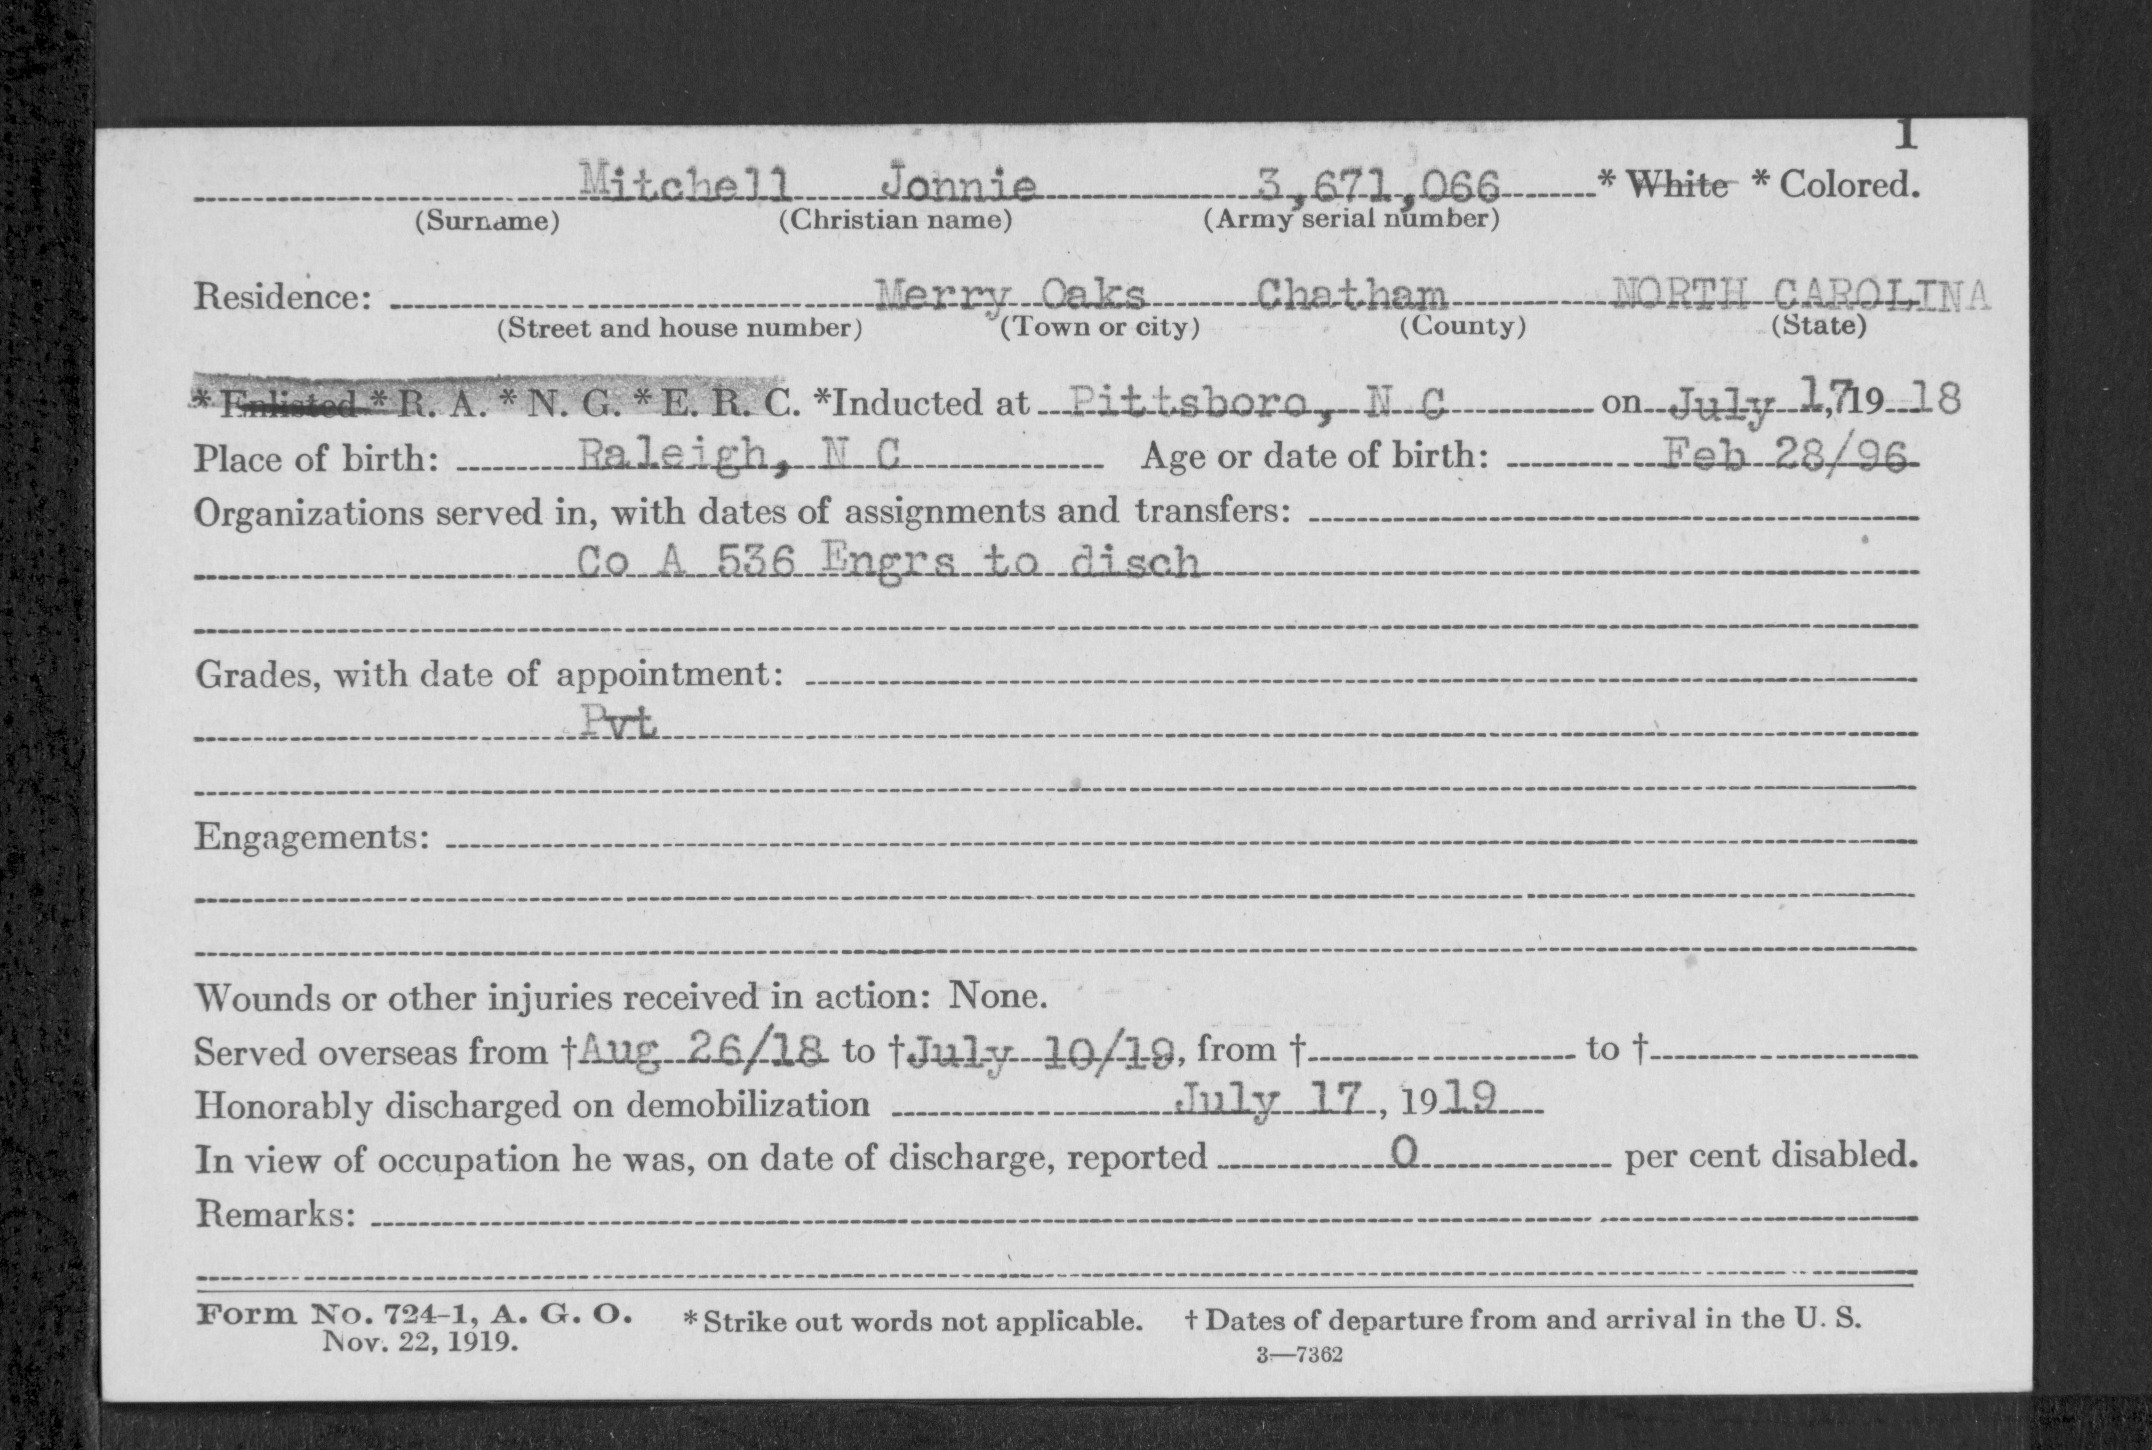 1
Mitchell Jonnie 3,671,066 * White * Colored.
(Surname) (Christian name) (Army serial number)
Residence: Merry Oaks Chatham NORTH CAROLINA
(Street and house number) (Town or city) (County) (State)
* Enlisted * R. A. * N. G. * E. R. C. *Inducted at Pittsboro, N C on July 17, 1918
Place of birth: Raleigh, N C Age or date of birth: Feb 28/96
Organizations served in, with dates of assignments and transfers:
Co A 536 Engrs to disch
Grades, with date of appointment:
Pvt
Engagements:
Wounds or other injuries received in action: None.
Served overseas from †Aug 26/18 to †July 10/19, from † to †
Honorably discharged on demobilization July 17, 1919
In view of occupation he was, on date of discharge, reported 0 per cent disabled.
Remarks:
Form No. 724-1, A. G. O. * Strike out words not applicable. † Dates of departure from and arrival in the U. S.
Nov. 22, 1919. 3—7362